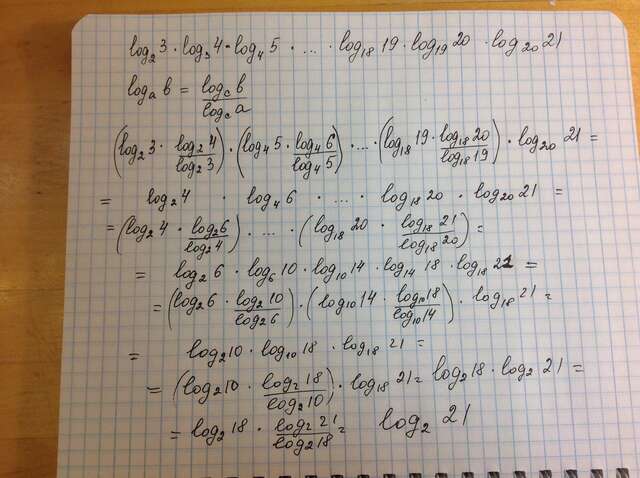 log₂3 · log₃4 · log₄5 · ... · log₁₈19 · log₁₉20 · log₂₀21
logₐb = log_c b / log_c a
(log₂3 · log₂4/log₂3) · (log₄5 · log₄6/log₄5) · ... · (log₁₈19 · log₁₈20/log₁₈19) · log₂₀21 =
= log₂4 · log₄6 · ... · log₁₈20 · log₂₀21 =
= (log₂4 · log₂6/log₂4) · ... · (log₁₈20 · log₁₈21/log₁₈20) =
= log₂6 · log₆10 · log₁₀14 · log₁₄18 · log₁₈21 =
= (log₂6 · log₂10/log₂6) · (log₁₀14 · log₁₀18/log₁₀14) · log₁₈21 =
= log₂10 · log₁₀18 · log₁₈21 =
= (log₂10 · log₂18/log₂10) · log₁₈21 = log₂18 · log₂21 =
= log₂18 · log₂21/log₂18 = log₂21